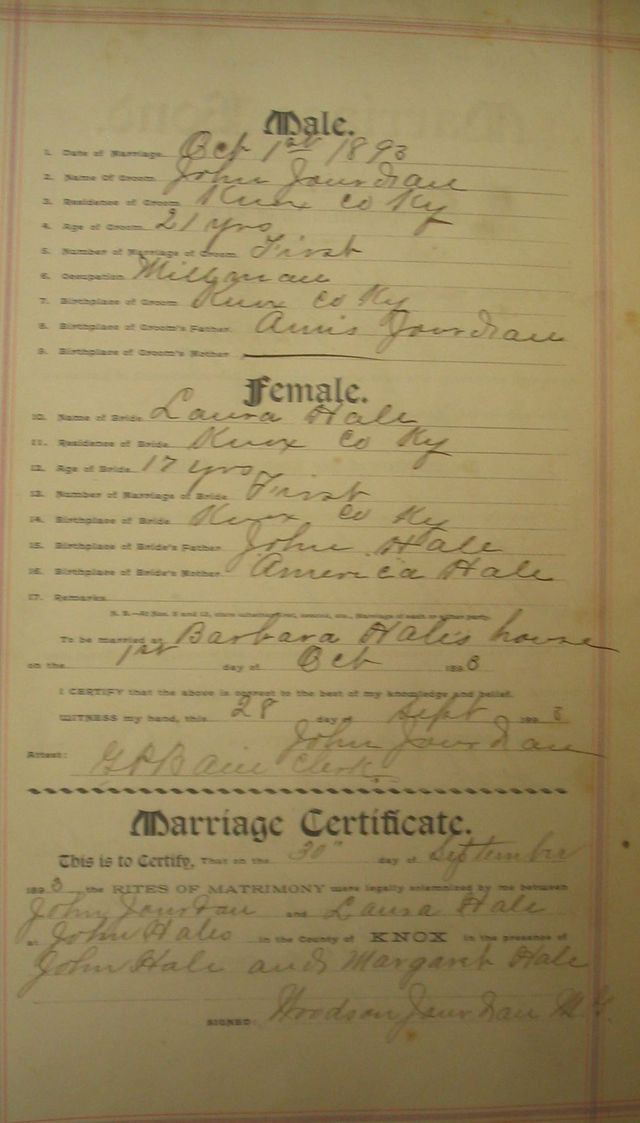 Male.
1. Date of Marriage Oct 1st 1893
2. Name Of Groom John Jourdan
3. Residence of Groom Knox Co Ky
4. Age of Groom 21 yrs
5. Number of Marriage of Groom First
6. Occupation Millman
7. Birthplace of Groom Knox Co Ky
8. Birthplace of Groom's Father Jourdan
9. Birthplace of Groom's Mother
Female.
10. Name of Bride Laura Hale
11. Residence of Bride Knox Co Ky
12. Age of Bride 17 yrs
13. Number of Marriage of Bride First
14. Birthplace of Bride Knox Co Ky
15. Birthplace of Bride's Father John Hale
16. Birthplace of Bride's Mother America Hale
17. Remarks
N. B.—At Nos. 5 and 13, state whether first, second, etc., Marriage of each or either party.
To be married at Barbara Hale's house
on the 1st day of Oct 1893
I CERTIFY that the above is correct to the best of my knowledge and belief.
WITNESS my hand, this 28 day of Sept 1893
John Jourdan
Attest: Clerk
Marriage Certificate.
This is to Certify, That on the 30" day of September
1893, the RITES OF MATRIMONY were legally solemnized by me between
John Jourdan and Laura Hale
at John Hales in the County of KNOX in the presence of
John Hale and Margaret Hale
SIGNED Woodson Jourdan M. G.